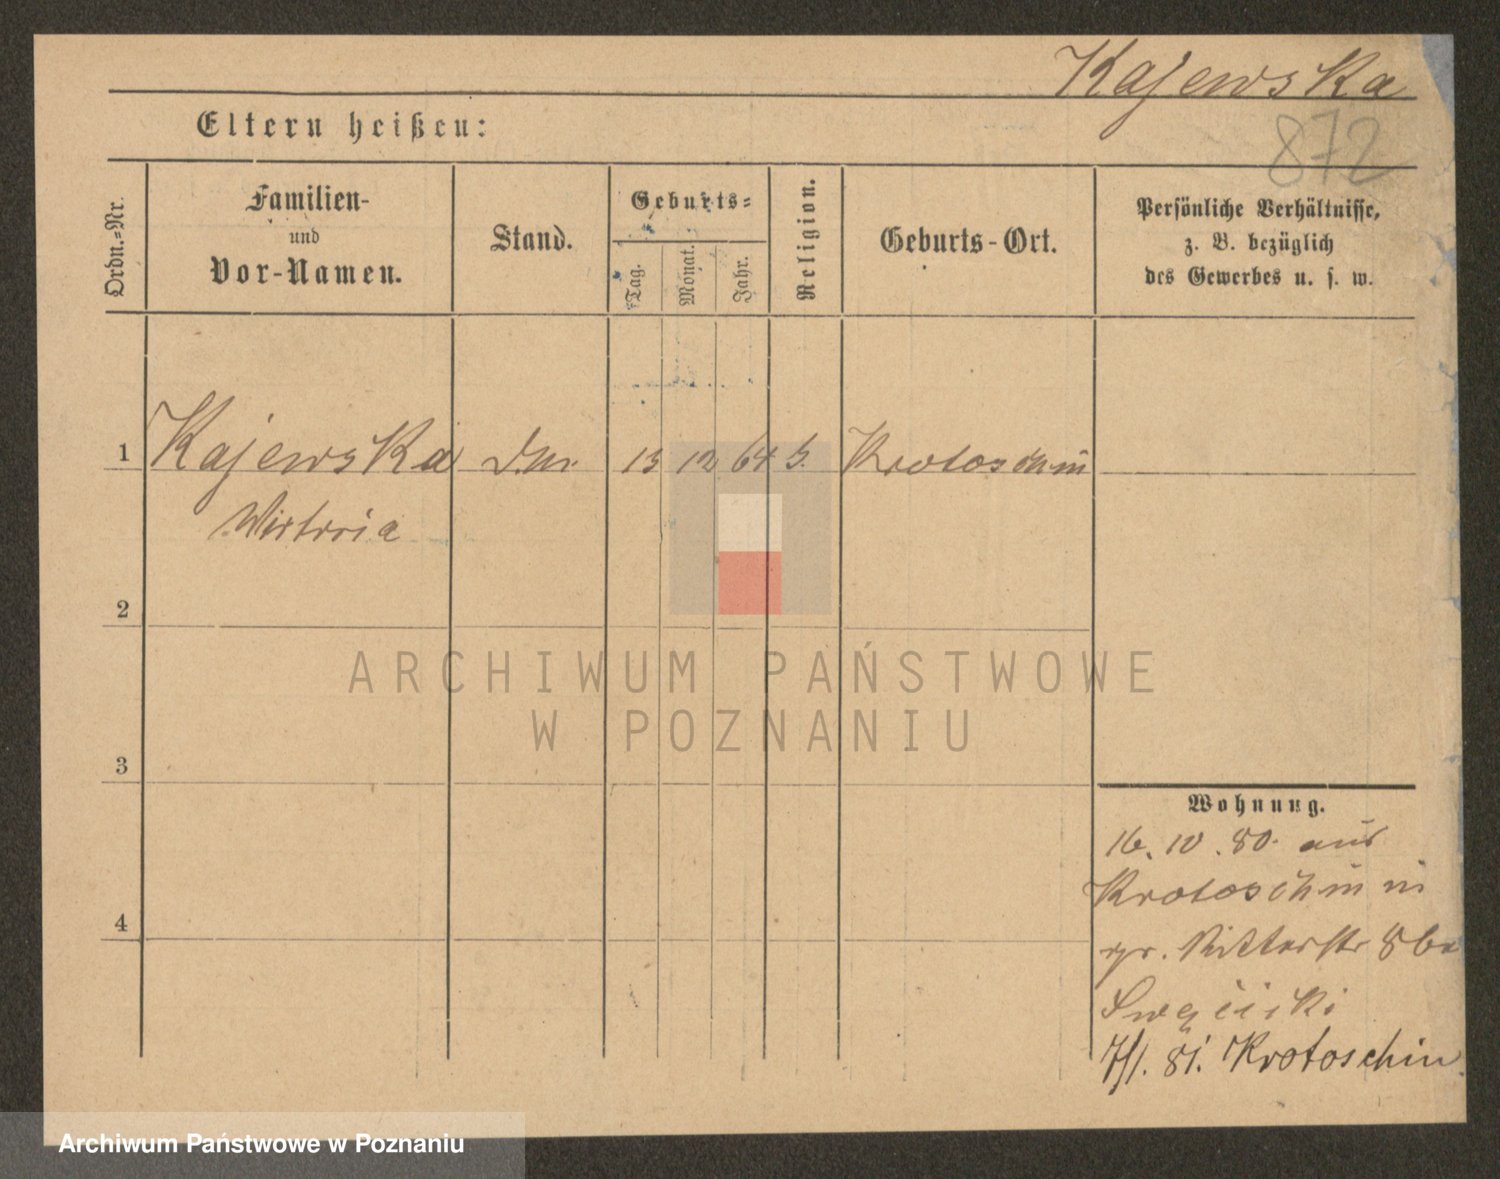 Kajewska
872
Eltern heißen:
Ordn.-Nr.
Familien-
und
Vor-Namen.
Stand.
Geburts-
Tag.
Monat.
Jahr.
Religion.
Geburts-Ort.
Persönliche Verhältnisse,
z. B. bezüglich
des Gewerbes u. s. w.
1
Kajewska
13 12 64
Krotoschin
2
ARCHIWUM PAŃSTWOWE
W POZNANIU
3
Wohnung.
16. 10. 80. aus
Krotoschin in
gr. Ritterstr 8 bei
4
7/1. 81. Krotoschin
Archiwum Państwowe w Poznaniu